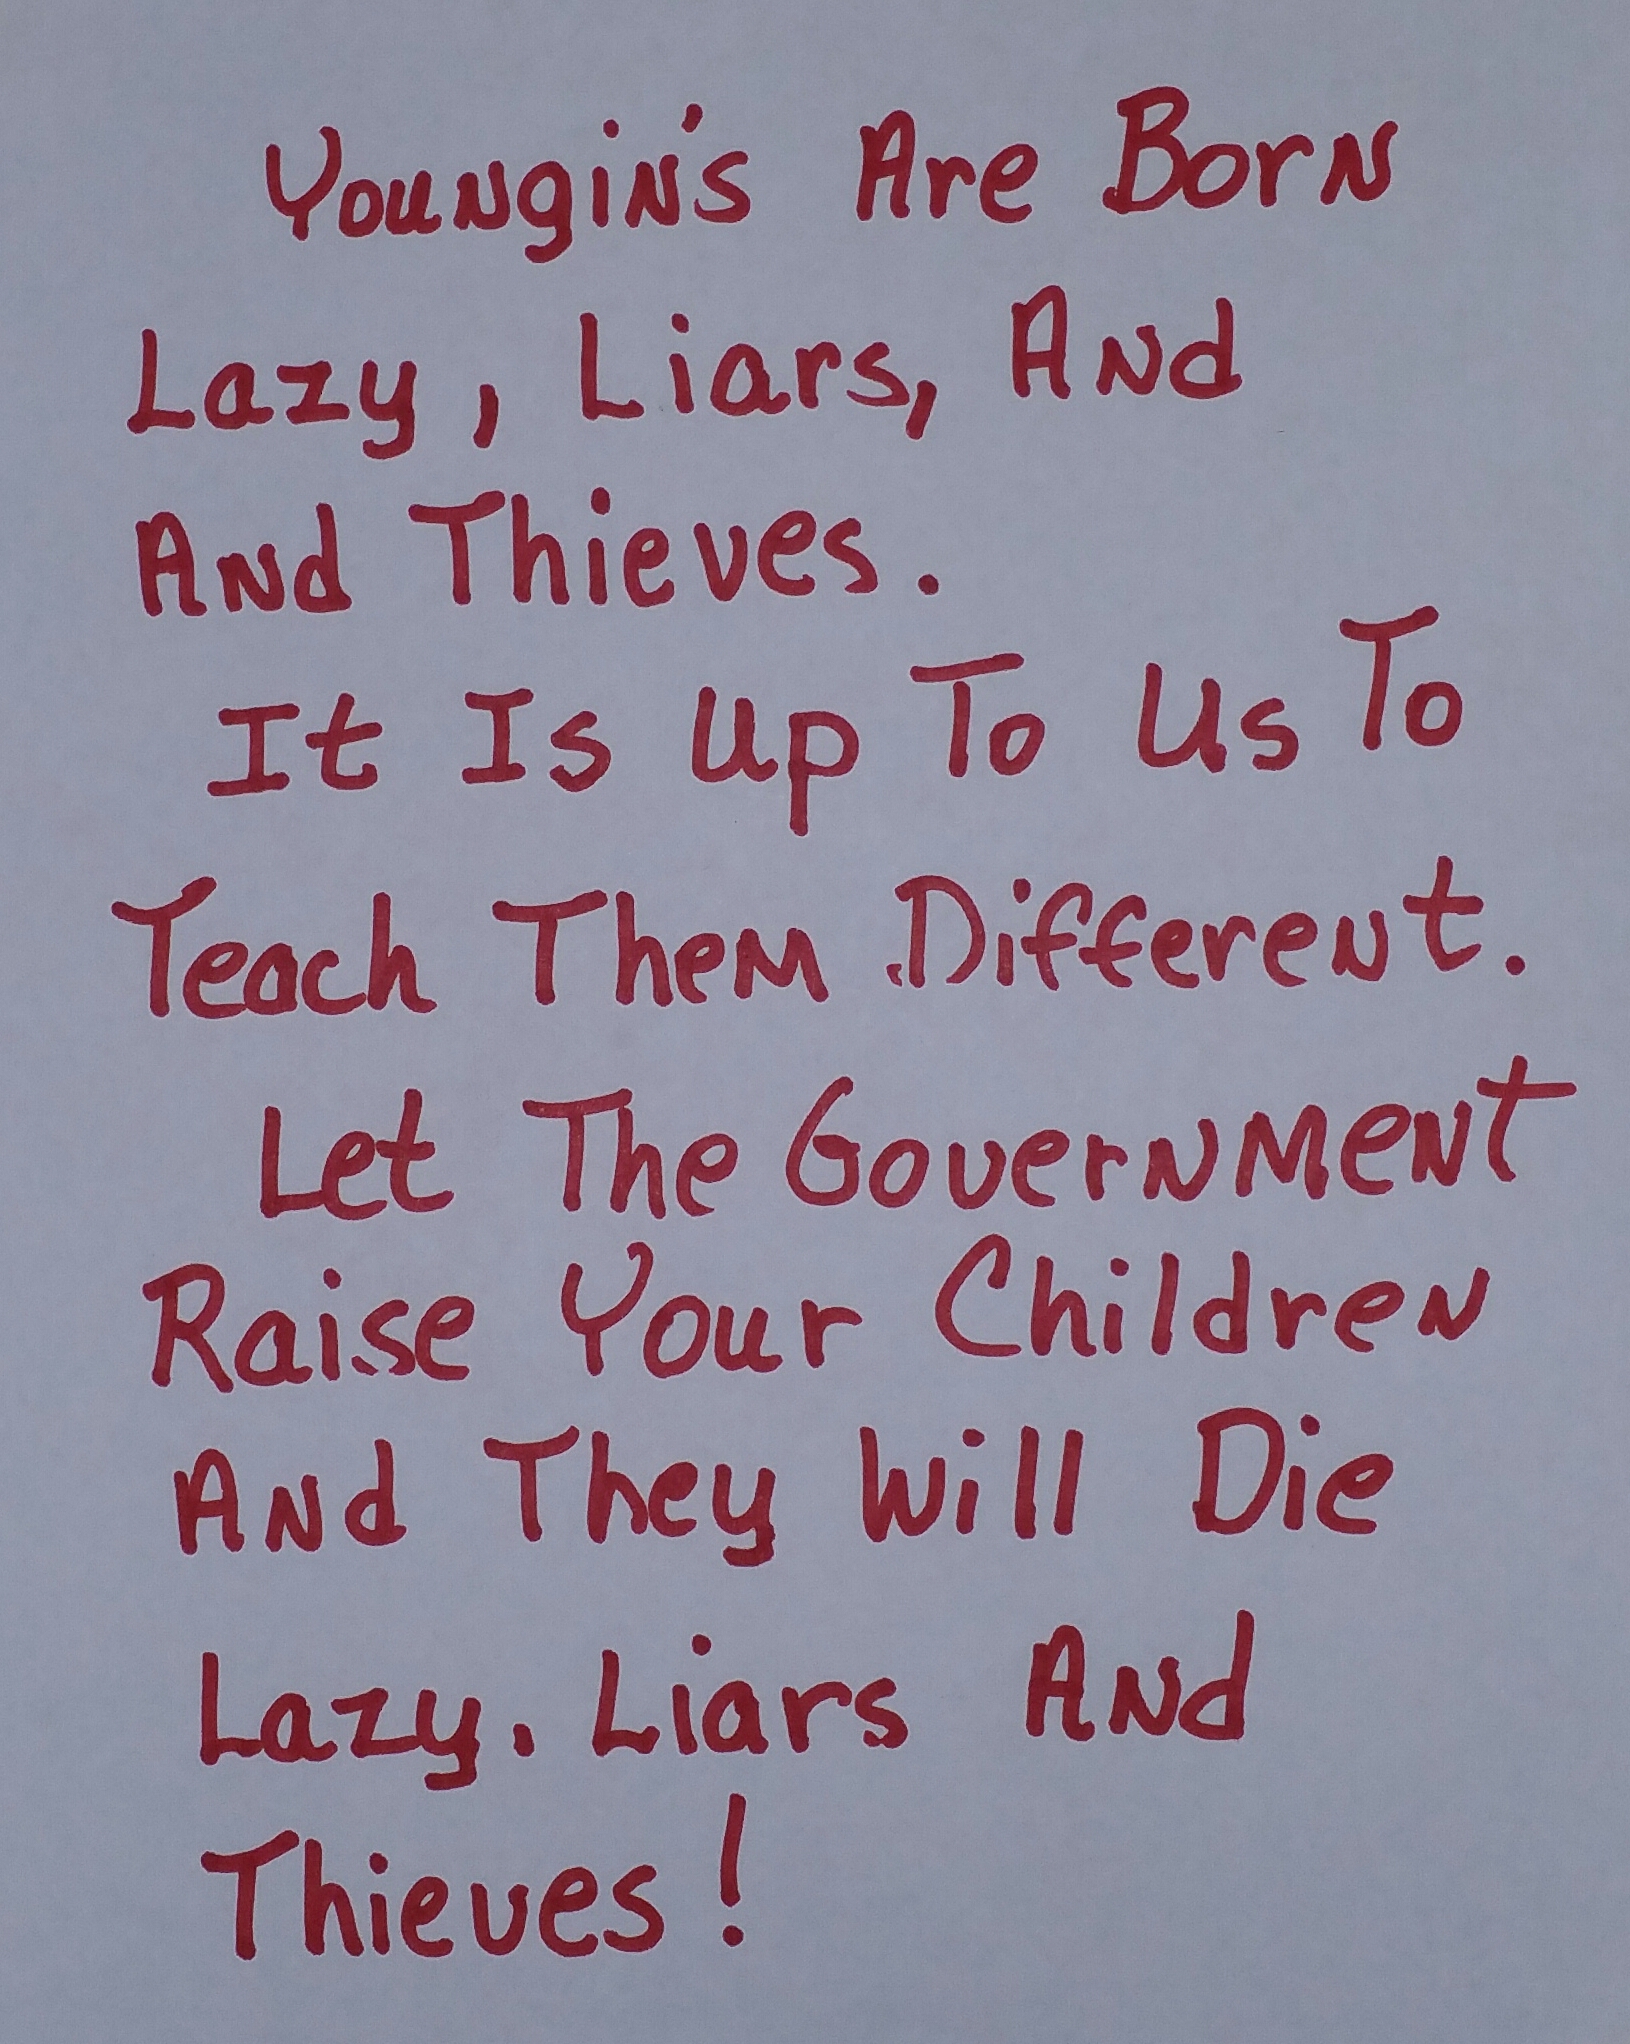 Youngin's Are Born
Lazy, Liars, And
And Thieves.
It Is Up To Us To
Teach Them Different.
Let The Government
Raise Your Children
And They Will Die
Lazy. Liars And
Thieves!